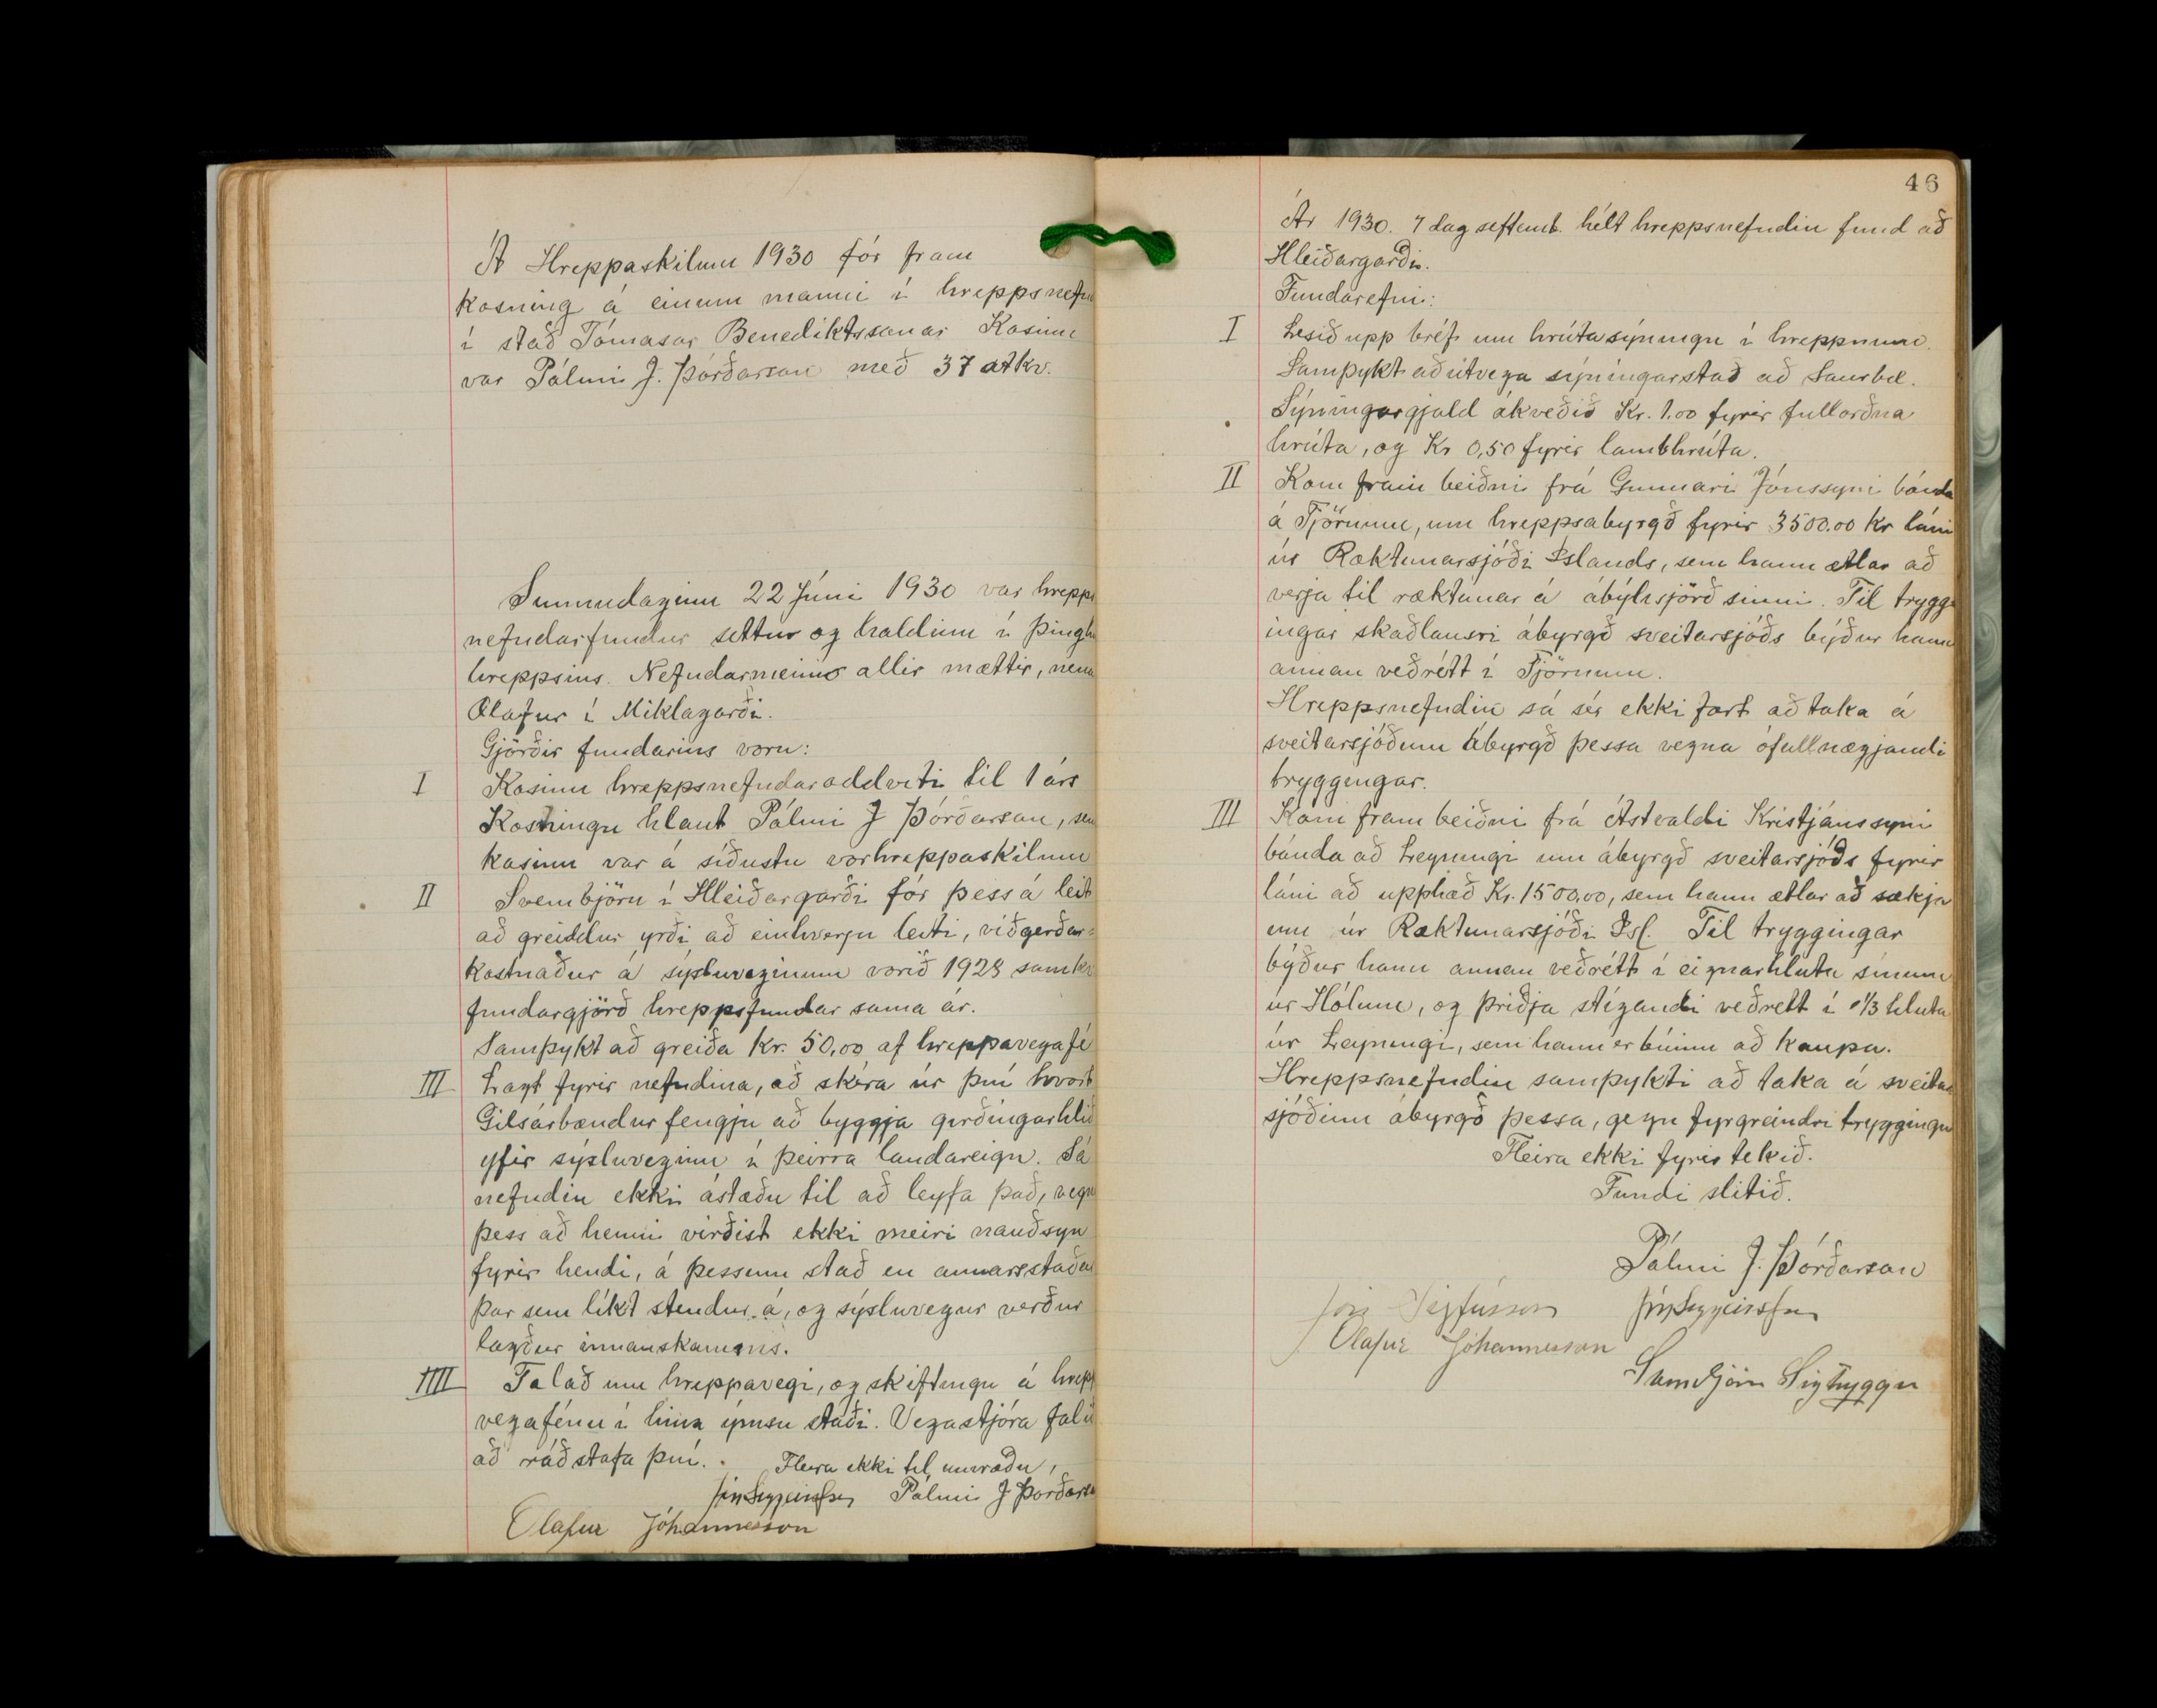 Á Hreppaskilum 1930 fór fram
kosning á einum manni í hreppsnefn
í stað Tómasar Benediktssonar Kosinn
var Pálmi J. Þórðarson með 37 atkv.
Sunnudaginn 22 Júni 1930 var hrepps
nefndarfundur settur og haldinn í þingh
hreppsins. Nefndarmenn allir mættir, nema
Ólafur í Miklagarði.
Gjörðir fundarins voru:
I Kosinn hreppsnefndaroddviti til 1 árs
Kosningu hlaut Pálmi J Þórðarson, sem
kosinn var á síðustu vorhreppaskilum
II Sveinbjörn í Hleiðargarði fór þess á leit
að greiddur yrði að einhverju leiti, viðgerðar=
kostnaður á sýsluveginum vorið 1928 samkv
fundargjörð hreppsfundar sama ár.
Samþykt að greiða Kr. 50,00 af hreppavegafé
III Lagt fyrir nefndina, að skera úr því hvort
Gilsárbændur fengju að byggja girðingarhlið
yfir sýsluveginn í þeirra landareign. Sá
nefndin ekki ástæðu til að leyfa það, vegn
þess að henni virðist ekki meiri nauðsyn
fyrir hendi, á þessum stað en annarsstaðar
þar sem líkt stendur á, og sýsluvegur verður
lagður innanskamms.
IIII Talað um hreppavegi, og skiftingu á hrepp
vegafénu í hina ýmsu staði. Vegastjóra falið
að ráðstafa því. Fleira ekki til umræðu,
Jón Siggeirsson Pálmi J Þórðarso
Ólafur Jóhannesson
46
Ár 1930. 7 dag septemb. hélt hreppsnefndin fund að
Hleiðargarði.
Fundarefni:
I Lesið upp bréf um hrútasýningu í hreppnum.
Samþykt að útvega sýningarstað að Saurbæ.
Sýningargjald ákveðið Kr. 1.00 fyrir fullorðna
hrúta, og Kr 0,50 fyrir lambhrúta.
II Kom fram beiðni frá Gunnari Jónssyni bónda
á Tjörnum, um hreppsabyrgð fyrir 3500.00 kr láni
úr Ræktunarsjóði Íslands, sem hann ætlar að
verja til ræktunar á ábýlisjörð sinni. Til trygg
ingar skaðlausri ábyrgð sveitarsjóðs býður hann
annan veðrétt í Tjörnum.
Hreppsnefndin sá sér ekki fært að taka á
sveitarsjóðinn ábyrgð þessa vegna ófullnægjandi
tryggingar.
III Kom fram beiðni frá Ástvaldi Kristjánssyni
bónda að Leyningi um ábyrgð sveitarsjóðs fyrir
láni að upphæð Kr. 1500,00, sem hann ætlar að sækja
um úr Ræktunarsjóði Ísl. Til tryggingar
býður hann annan veðrétt í eignarhluta sínum
úr Hólum, og þriðja stígandi veðrétt í 1/3 hluta
úr Leyningi, sem hann er búinn að kaupa.
Hreppsnefndin samþykti að taka á sveitar
sjóðinn ábyrgð þessa, gegn fyrgreindri tryggingu
Fleira ekki fyrir tekið.
Fundi slitið.
Pálmi J. Þórðarson
Jón Sigfússon Jón Siggeirsson
Ólafur Jóhannesson
Sveinbjörn Sigtryggs